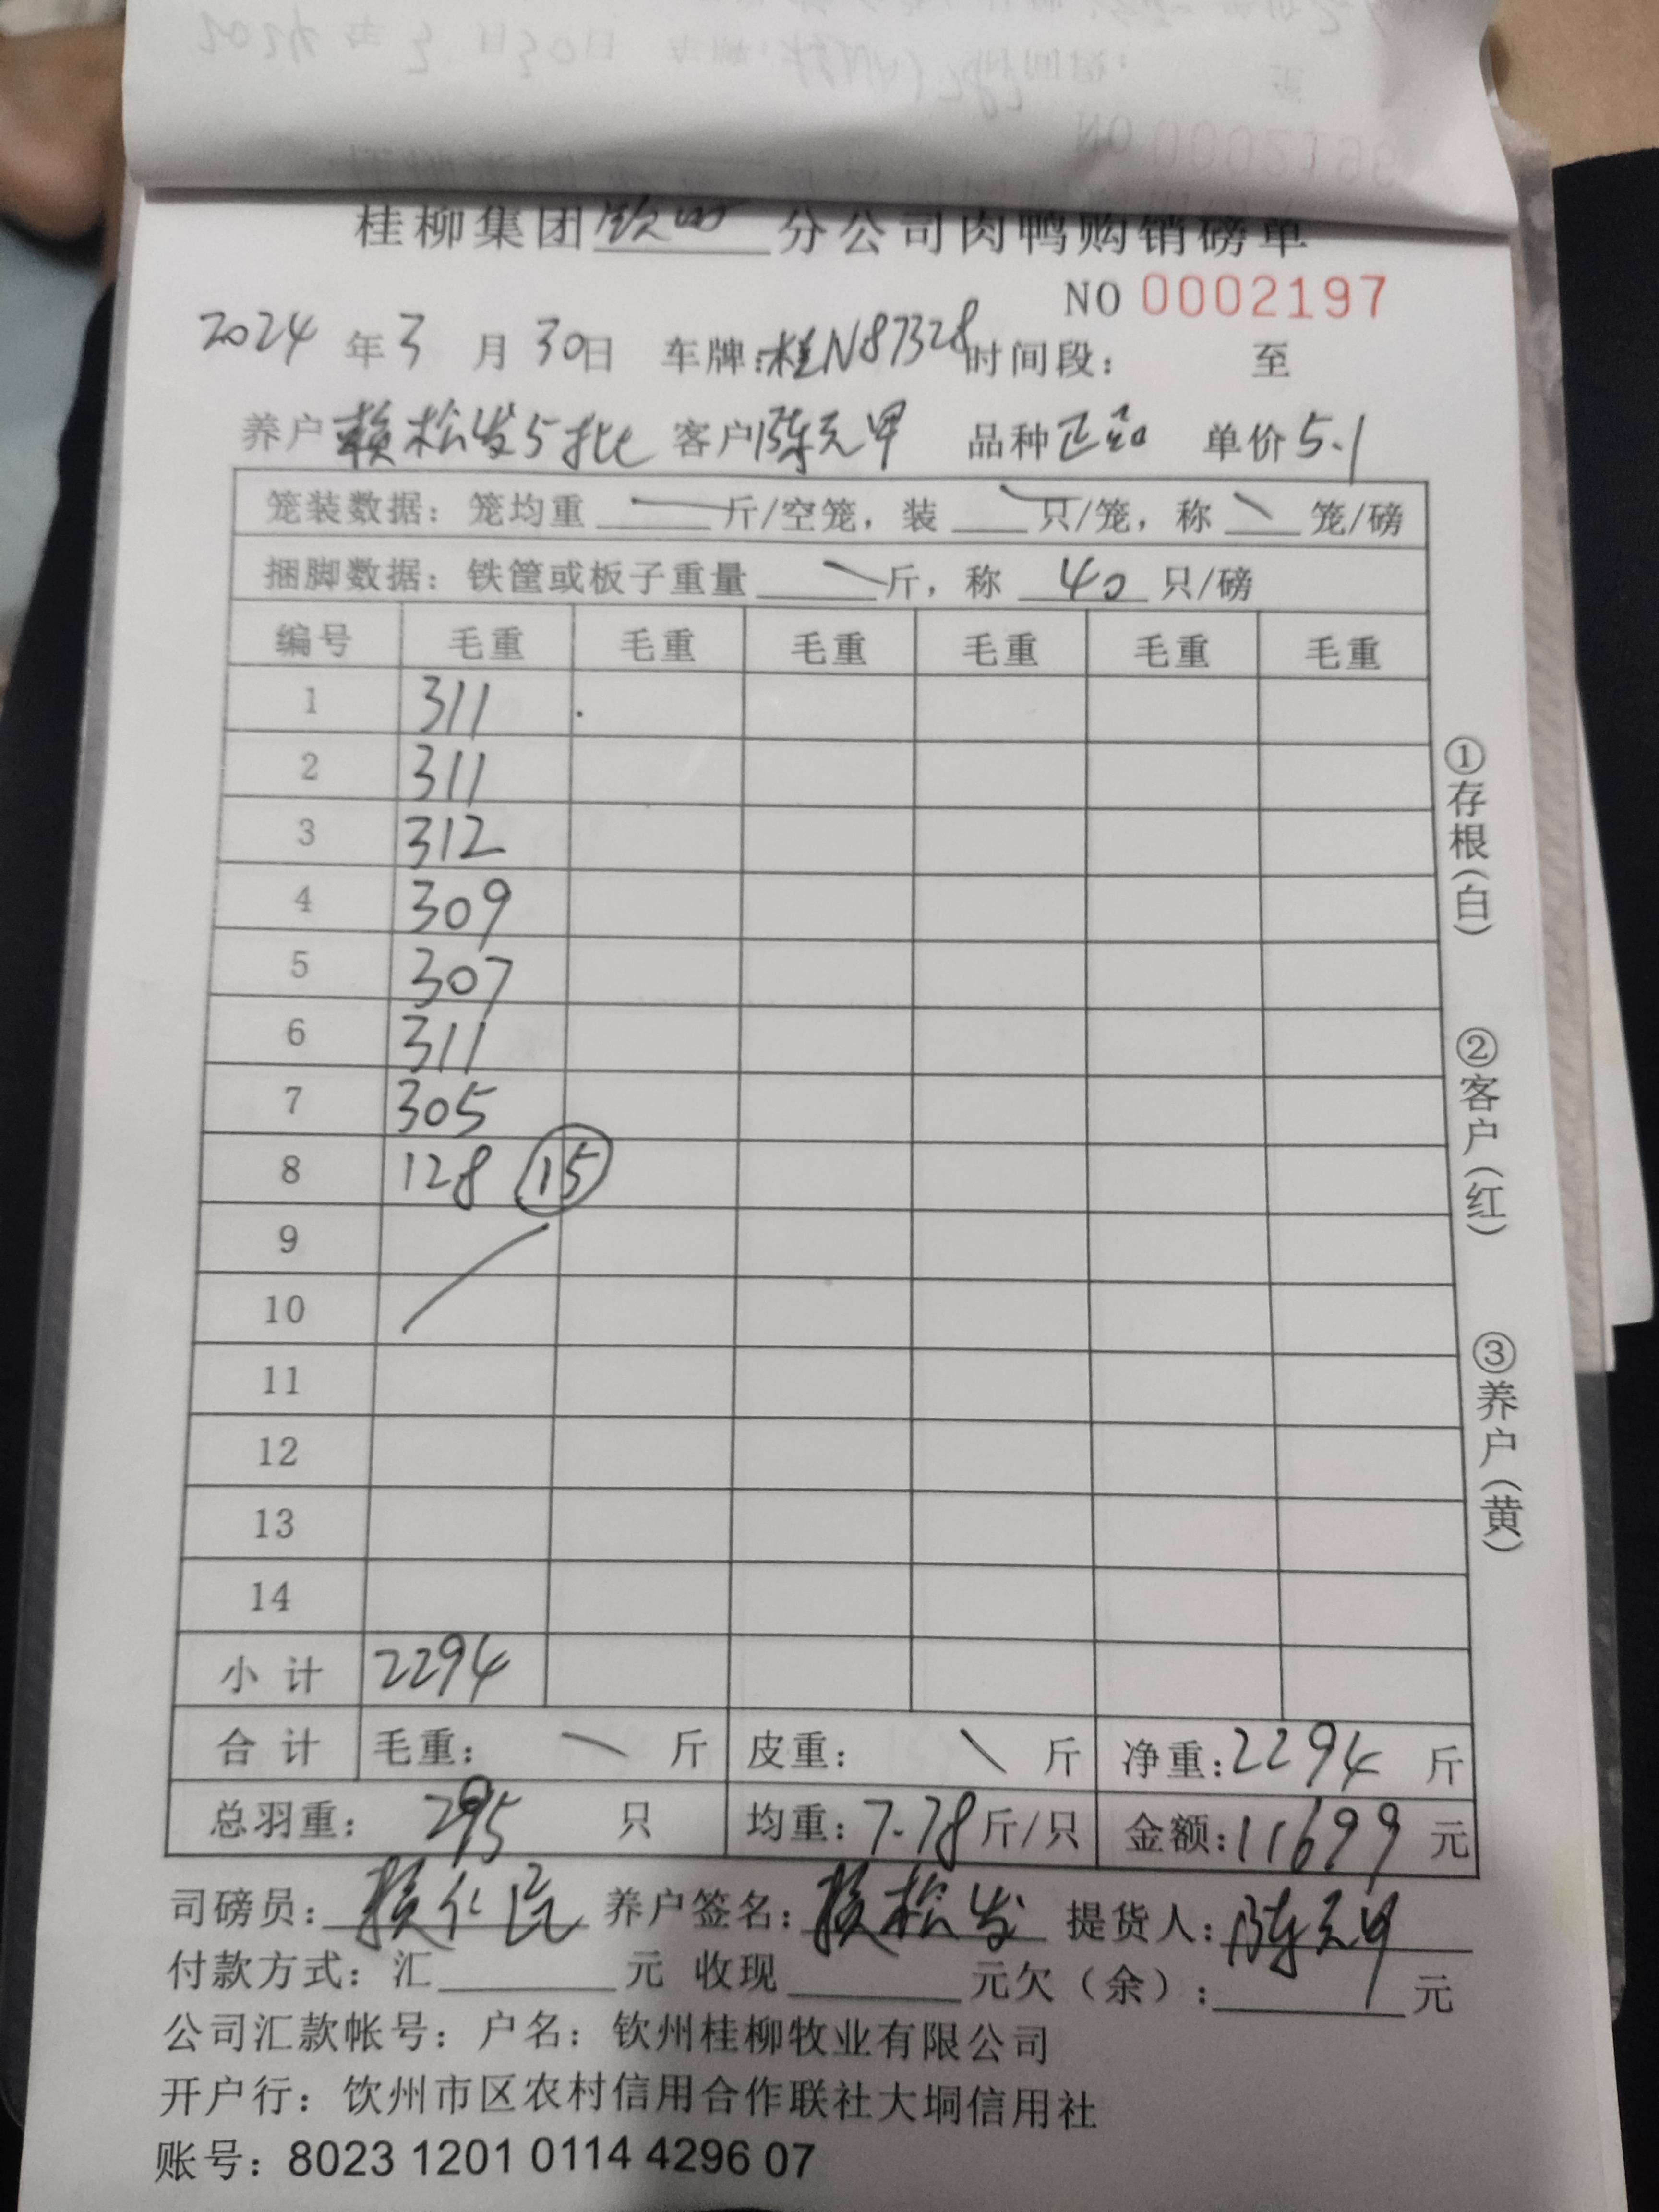 桂柳集团钦州分公司肉鸭购销磅单
NO 0002197
2024年3月30日 车牌:桂N87328 时间段: 至
养户赖松发5批 客户陈元甲 品种正品 单价5.1
笼装数据: 笼均重 斤/空笼, 装 只/笼, 称 笼/磅
捆脚数据: 铁筐或板子重量 斤, 称 40 只/磅
编号 毛重 毛重 毛重 毛重 毛重 毛重
1 311
2 311
3 312
4 309
5 307
6 311
7 305
8 128 15
9
10
11
12
13
14
小计 2294
合计 毛重: 斤 皮重: 斤 净重:2294 斤
总羽重: 295 只 均重:7.78斤/只 金额:11699元
司磅员: 养户签名:赖松发 提货人:陈元甲
付款方式: 汇 元 收现 元欠(余): 元
公司汇款帐号: 户名: 钦州桂柳牧业有限公司
开户行: 饮州市区农村信用合作联社大垌信用社
账号: 8023 1201 0114 4296 07
①存根(白)
②客户(红)
③养户(黄)